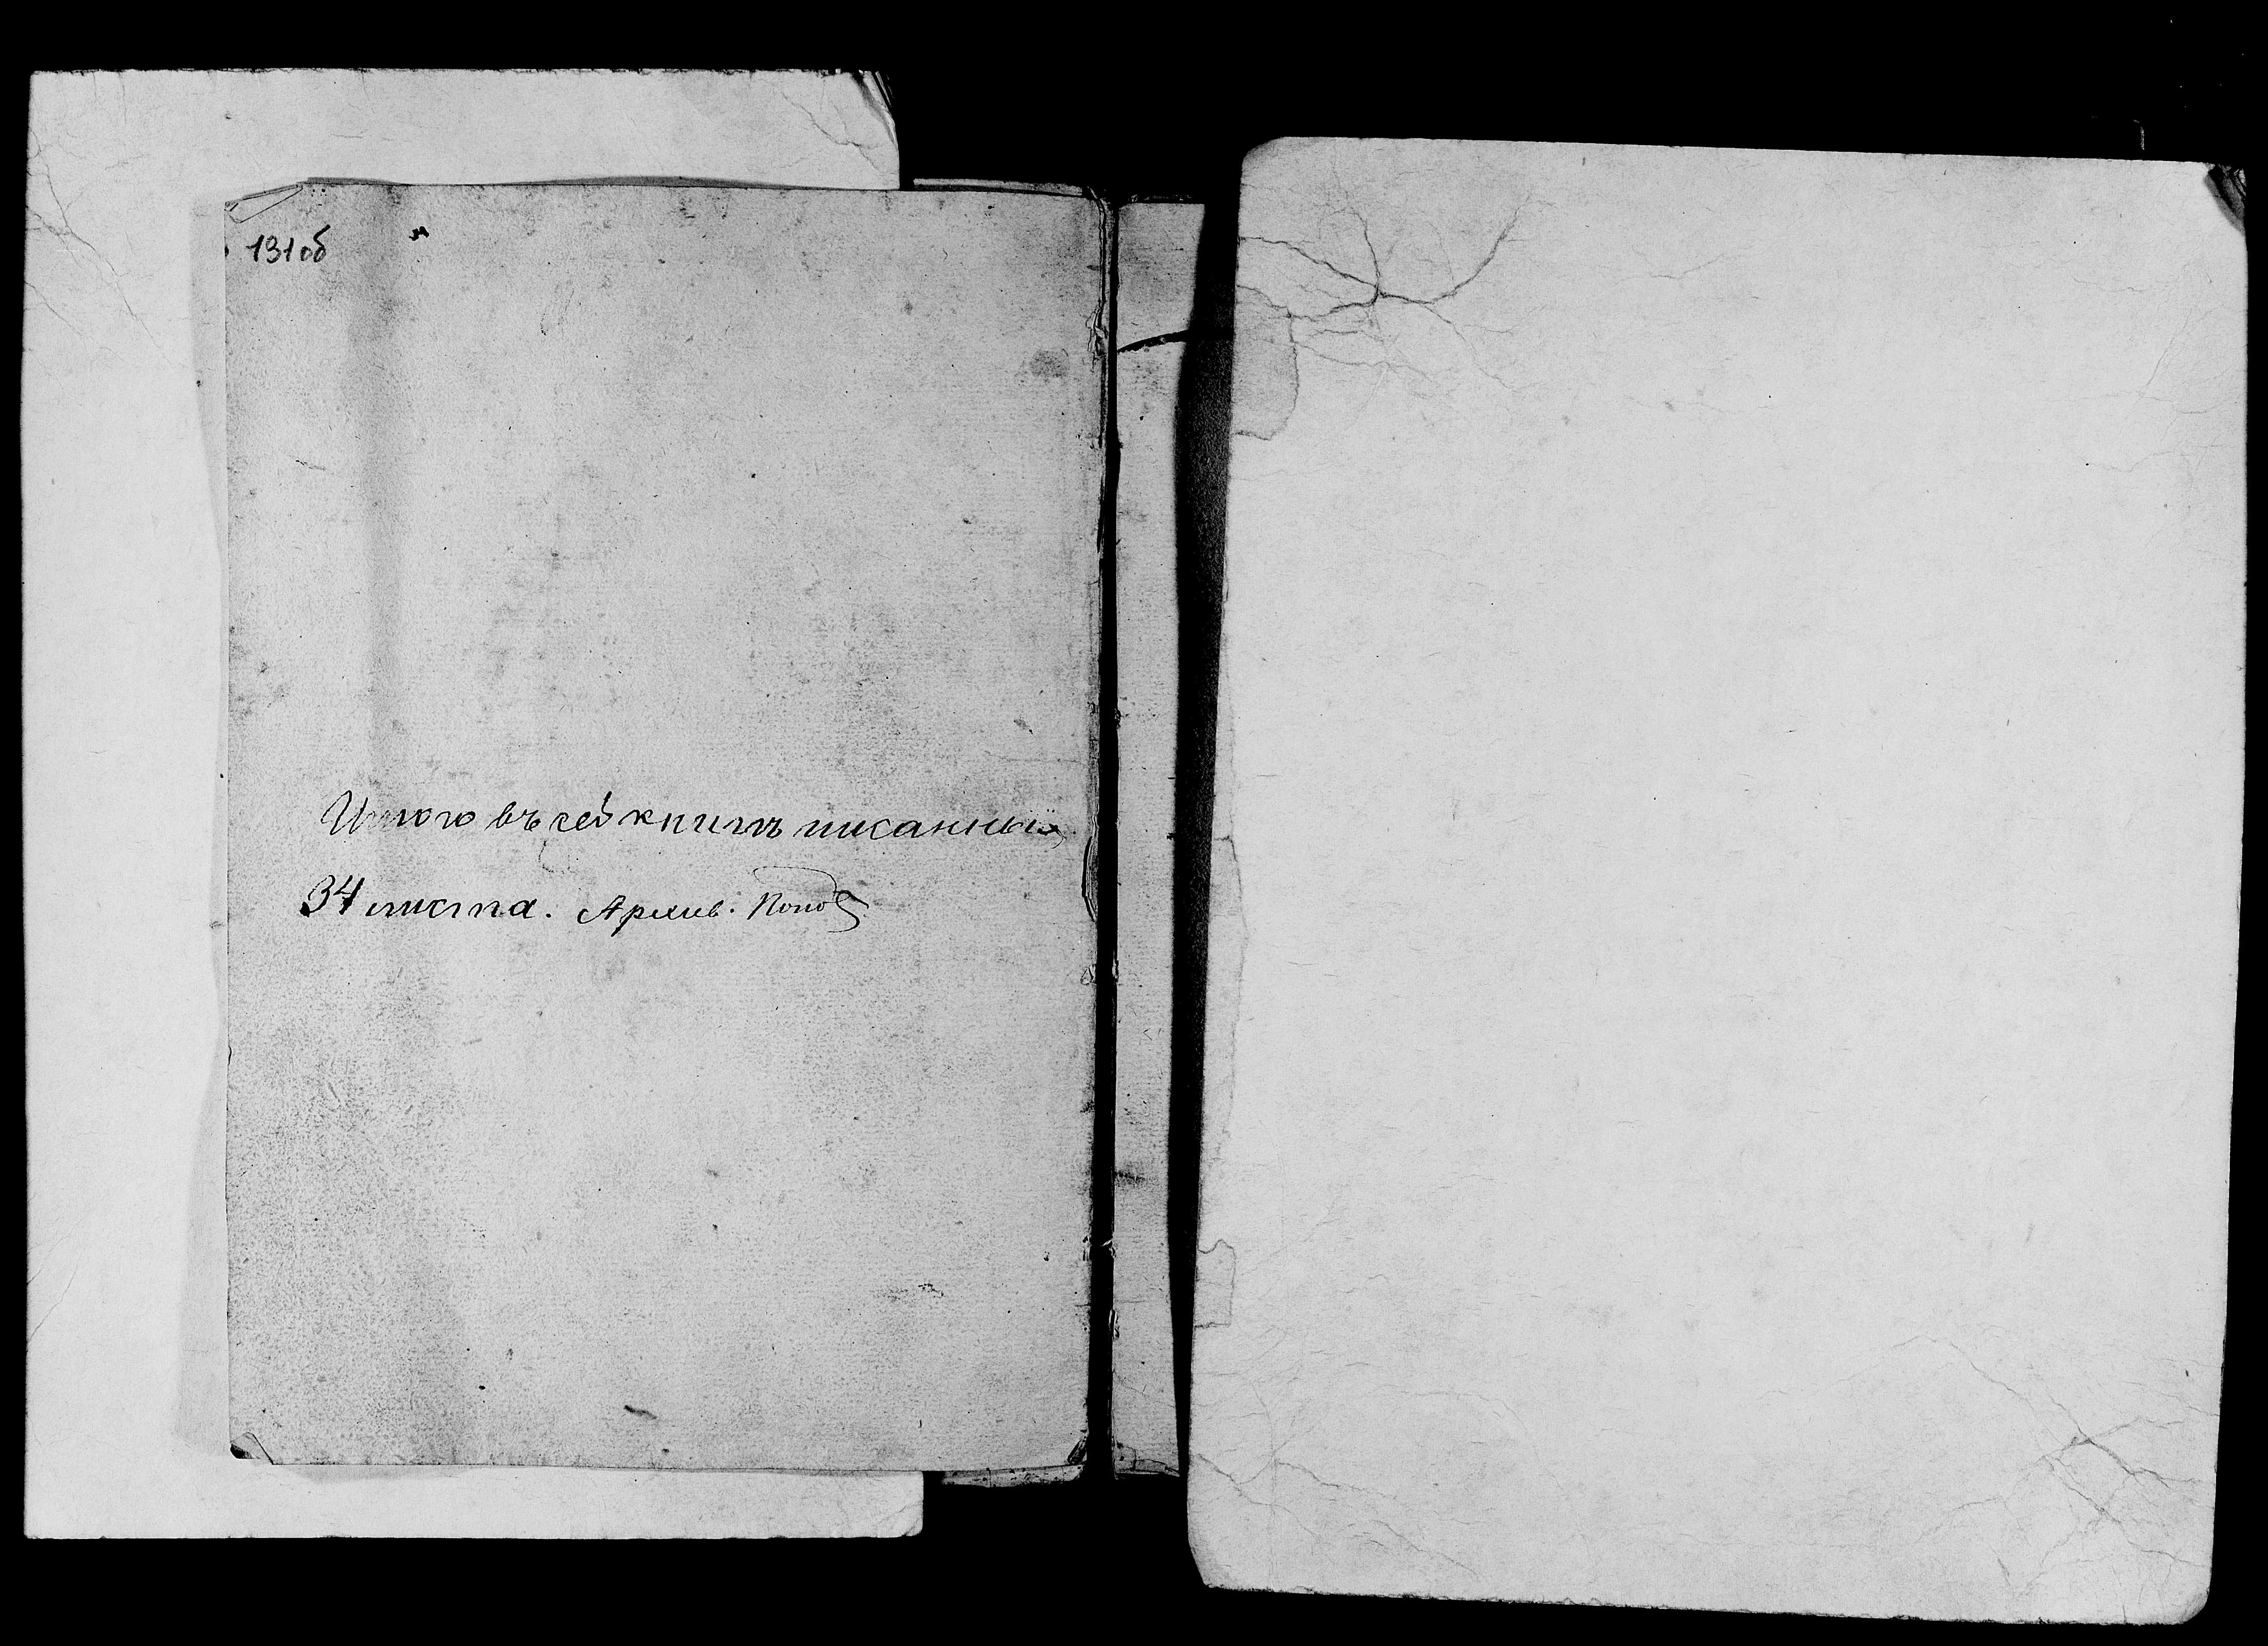 131об
Итого въ сей книгѣ писанныхъ
34 листа. Архив. Попов